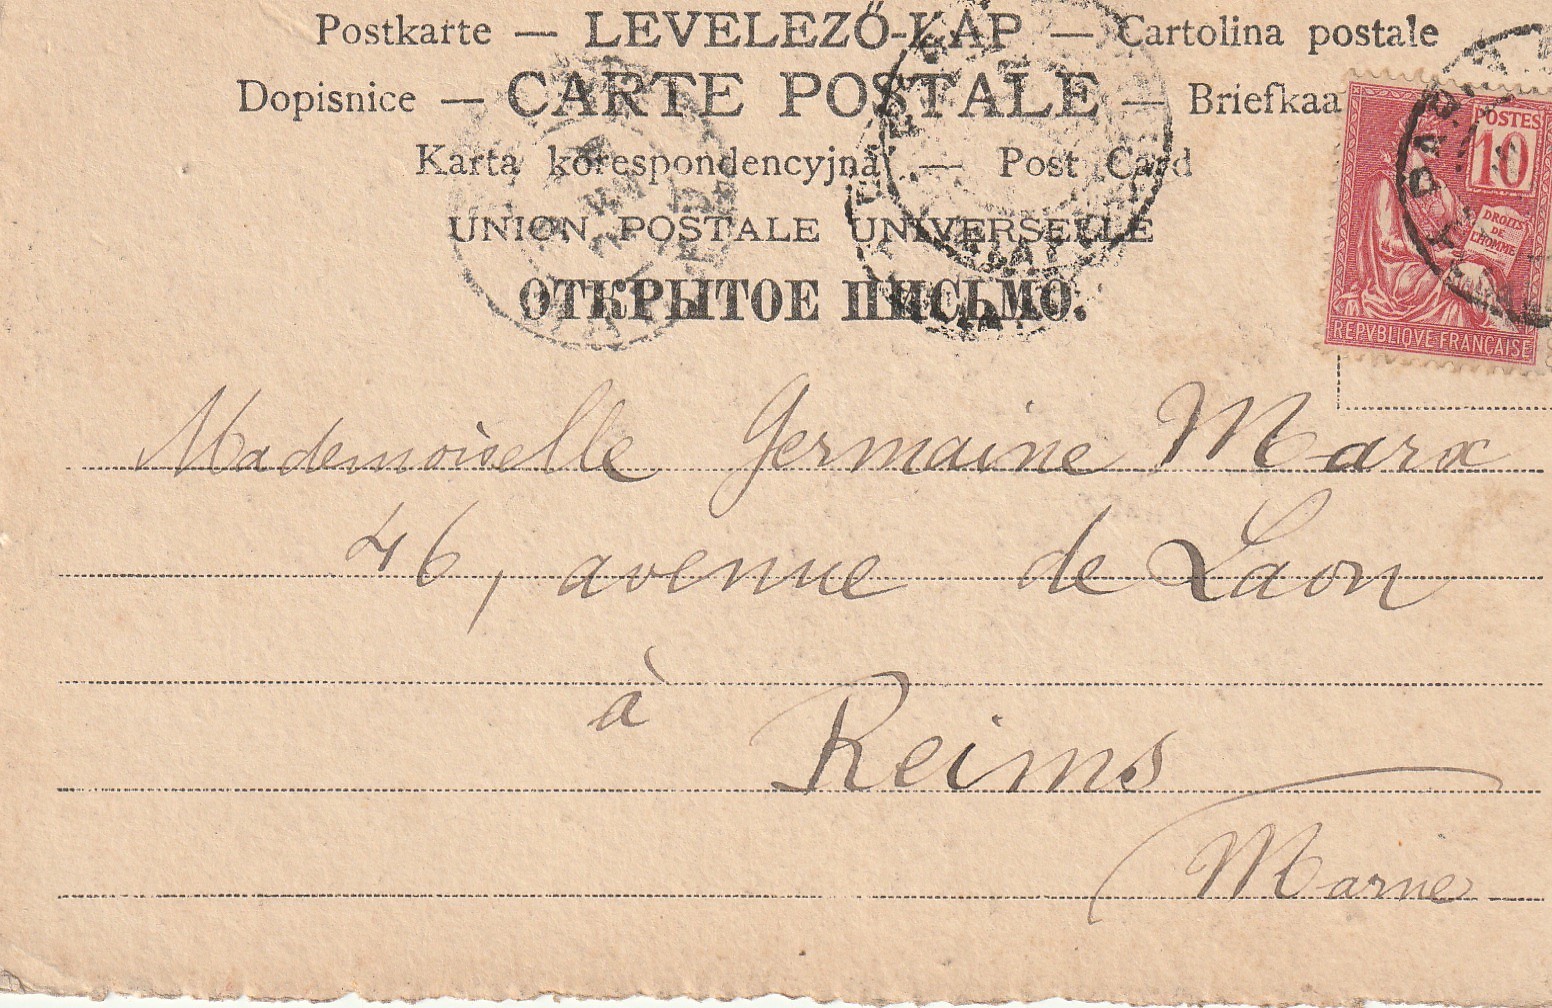 Postkarte — LEVELEZŐ-LAP — Cartolina postale
Dopisnice — CARTE POSTALE — Briefkaa
Karta korespondencyjna — Post Card
UNION POSTALE UNIVERSELLE
ОТКРЫТОЕ ПИСЬМО.
POSTES
10
DROITS
DE
L'HOMME
REPVBLIQVE FRANÇAISE
Mademoiselle Germaine Marx
46, avenue de Laon
à Reims
Marne